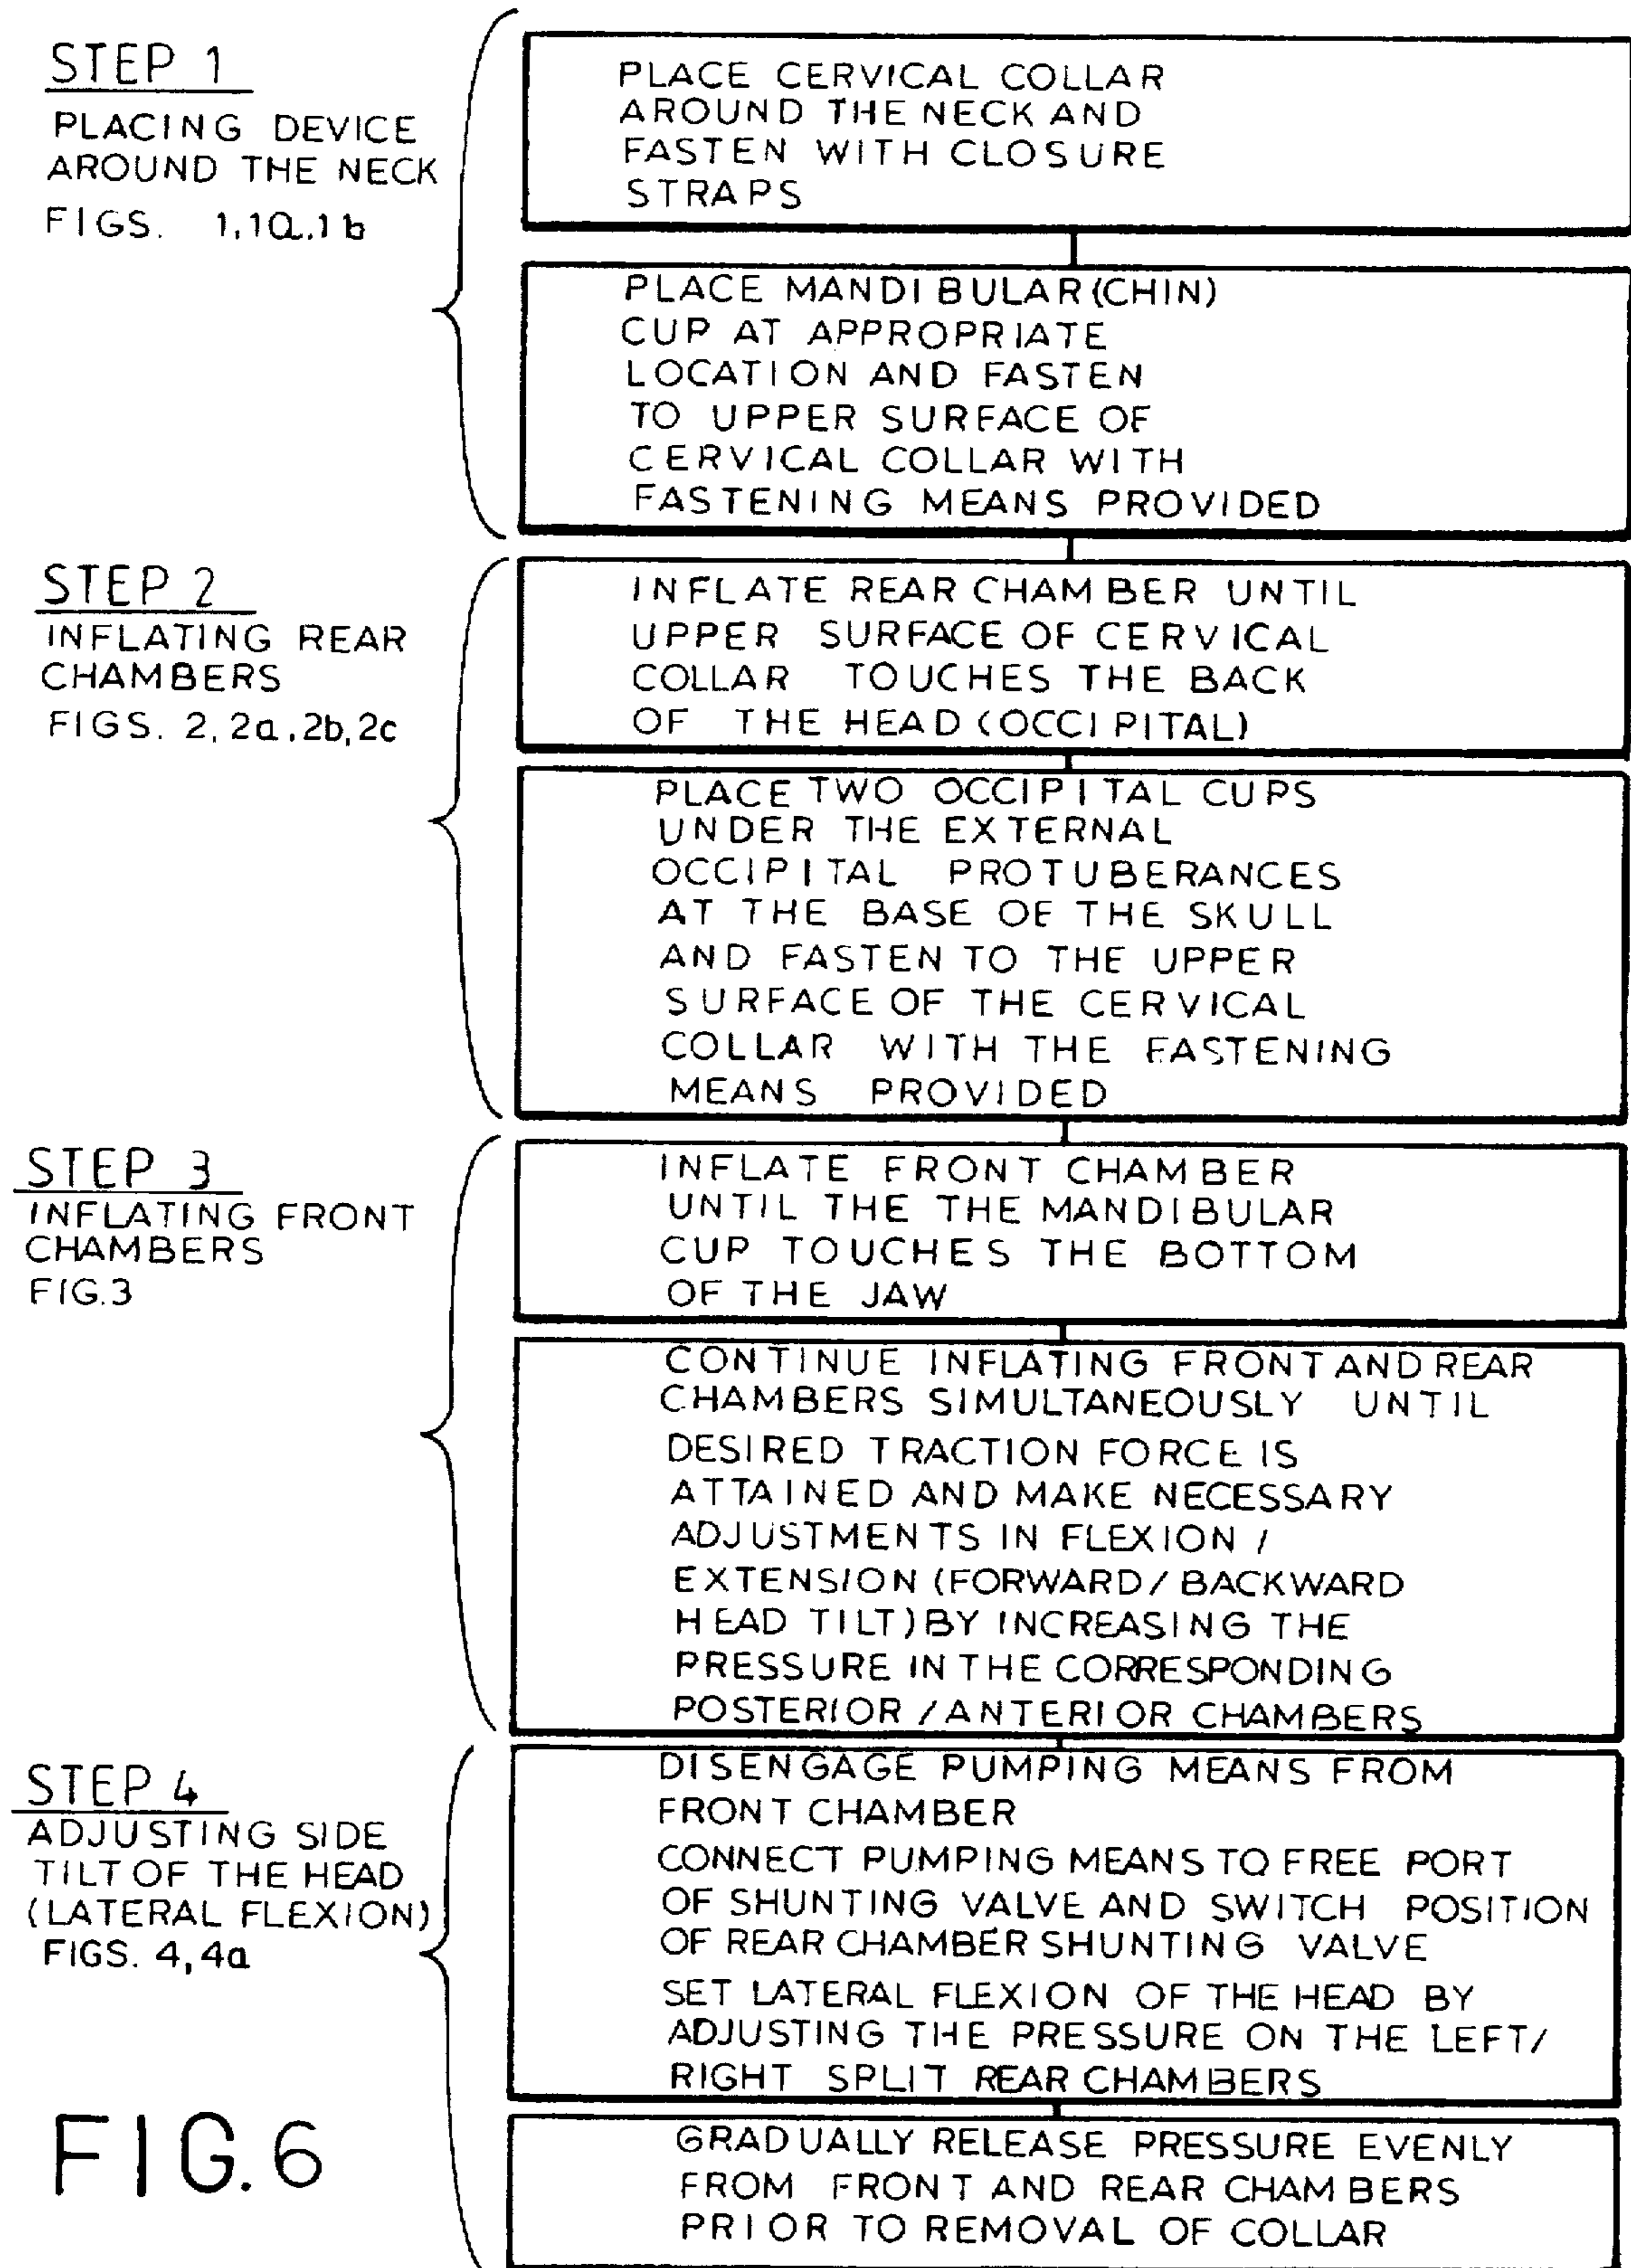 STEP 1
PLACING DEVICE
AROUND THE NECK
FIGS. 1,1a,1b
PLACE CERVICAL COLLAR
AROUND THE NECK AND
FASTEN WITH CLOSURE
STRAPS
PLACE MANDIBULAR (CHIN)
CUP AT APPROPRIATE
LOCATION AND FASTEN
TO UPPER SURFACE OF
CERVICAL COLLAR WITH
FASTENING MEANS PROVIDED
STEP 2
INFLATING REAR
CHAMBERS
FIGS. 2, 2a, 2b, 2c
INFLATE REAR CHAMBER UNTIL
UPPER SURFACE OF CERVICAL
COLLAR TOUCHES THE BACK
OF THE HEAD (OCCIPITAL)
PLACE TWO OCCIPITAL CUPS
UNDER THE EXTERNAL
OCCIPITAL PROTUBERANCES
AT THE BASE OF THE SKULL
AND FASTEN TO THE UPPER
SURFACE OF THE CERVICAL
COLLAR WITH THE FASTENING
MEANS PROVIDED
STEP 3
INFLATING FRONT
CHAMBERS
FIG.3
INFLATE FRONT CHAMBER
UNTIL THE THE MANDIBULAR
CUP TOUCHES THE BOTTOM
OF THE JAW
CONTINUE INFLATING FRONT AND REAR
CHAMBERS SIMULTANEOUSLY UNTIL
DESIRED TRACTION FORCE IS
ATTAINED AND MAKE NECESSARY
ADJUSTMENTS IN FLEXION /
EXTENSION (FORWARD / BACKWARD
HEAD TILT) BY INCREASING THE
PRESSURE IN THE CORRESPONDING
POSTERIOR / ANTERIOR CHAMBERS
STEP 4
ADJUSTING SIDE
TILT OF THE HEAD
(LATERAL FLEXION)
FIGS. 4, 4a
DISENGAGE PUMPING MEANS FROM
FRONT CHAMBER
CONNECT PUMPING MEANS TO FREE PORT
OF SHUNTING VALVE AND SWITCH POSITION
OF REAR CHAMBER SHUNTING VALVE
SET LATERAL FLEXION OF THE HEAD BY
ADJUSTING THE PRESSURE ON THE LEFT/
RIGHT SPLIT REAR CHAMBERS
GRADUALLY RELEASE PRESSURE EVENLY
FROM FRONT AND REAR CHAMBERS
PRIOR TO REMOVAL OF COLLAR
FIG.6